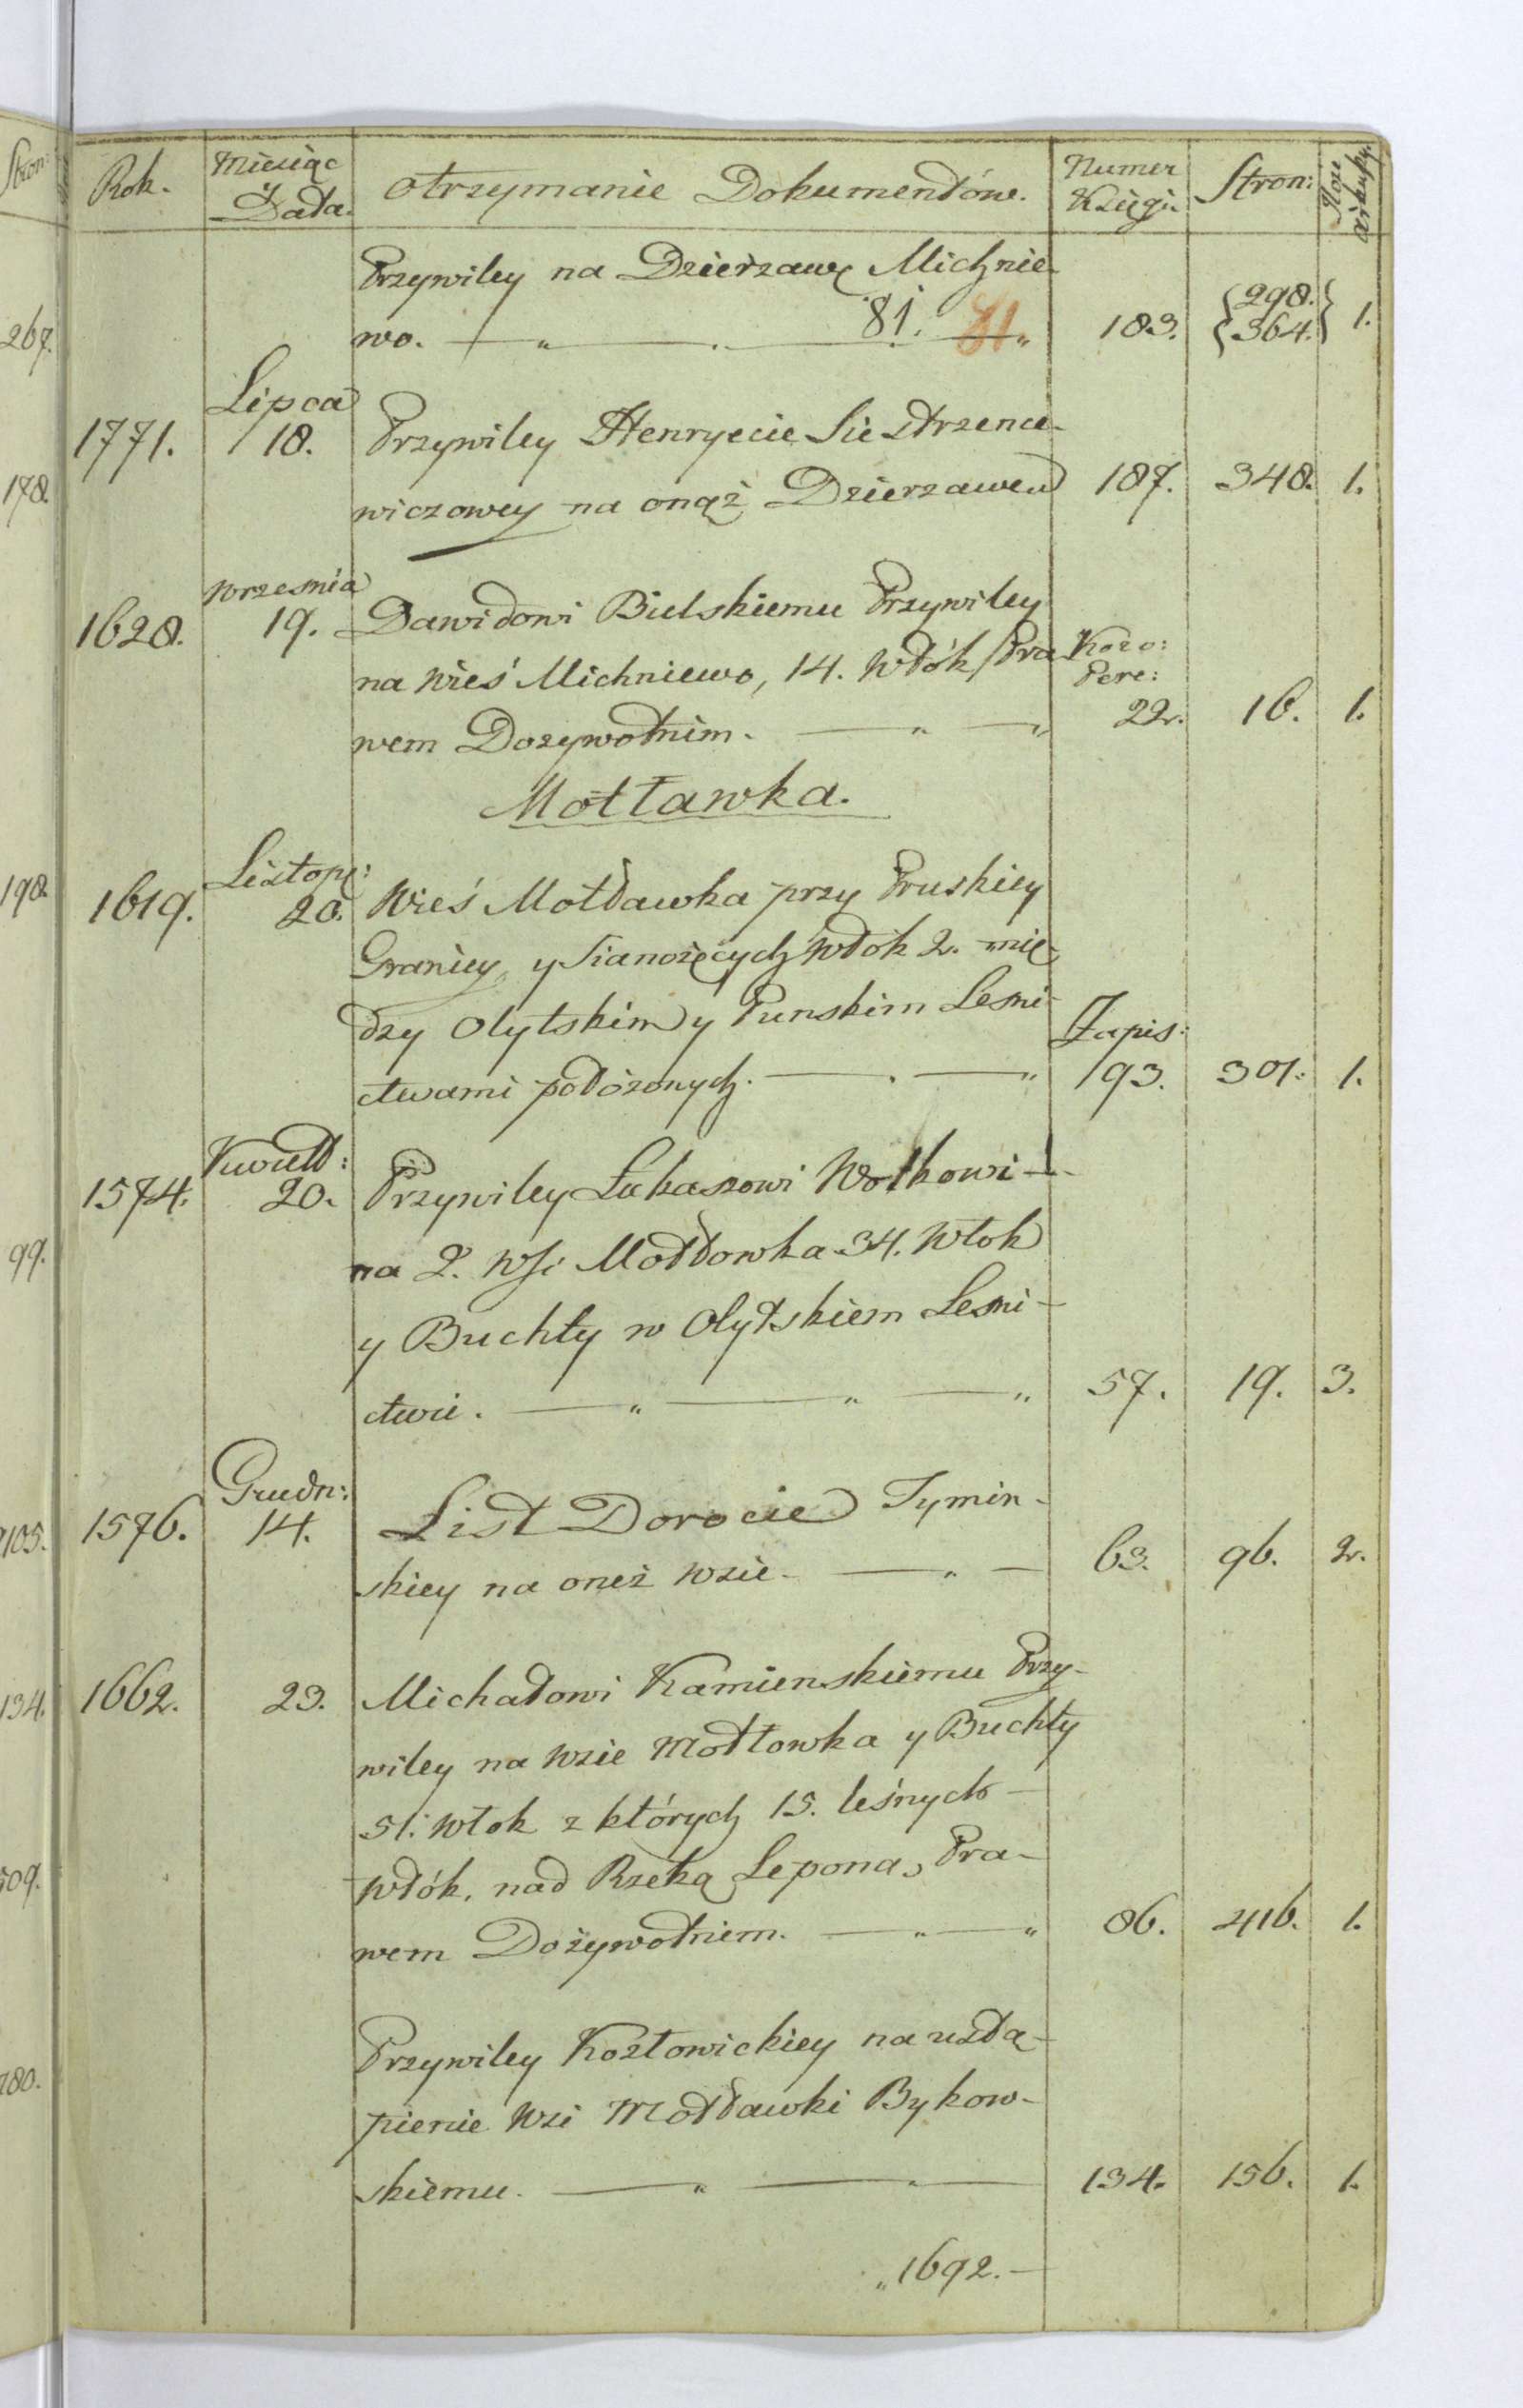 Stron:
Rok. Miesiąc Data. Otrzymanie Dokumentów. Numer Księgi. Stron: Ilość arkuszy.
Przywiley na Dzierżawę Michnie-
267. wo. 81. 81. 183. {298. 364.} 1.
Lipca
1771. 18. Przywiley Henryecie Siestrzence-
178. wiczowey na onąż Dzierżawę 187. 348. 1.
Wrzesnia
1628. 19. Dawidowi Bielskiemu Przywiley
na Wieś Michniewo, 14. Włók, Pra- Koro: Pere:
wem Dozywotnim. 22. 16. 1.
Mołtawka.
Listop:
198. 1619. 20. Wieś Mołtawka przy Pruskiey
Graniey y Sianożęcych Włók 2. mię-
dzy Olytskim y Punskim Lesni- Zapis:
ctwami położonych. 193. 301. 1.
Kwiet:
1574. 20. Przywiley Łukaszowi Wołkowi
99. na 2. Wsi Mołtowka 34. Włok
y Buchty w Olytskiem Lesni-
ctwie. 57. 19. 3.
Grudn:
105. 1576. 14. List Dorocie Tymin-
skiey na oneż Wsie. 63. 96. 2.
134. 1662. 23. Michałowi Kamienskiemu Przy-
wiley na Wsie Mołtowka y Buchty
51. Włok z których 15. leśnych
509. Włók, nad Rzeką Lepona, Pra-
wem Dożywotniem. 86. 416. 1.
180. Przywiley Kozłowickiey na ustą-
pienie Wsi Mołtawki Bykow-
skiemu. 134. 156. 1.
„1692.—